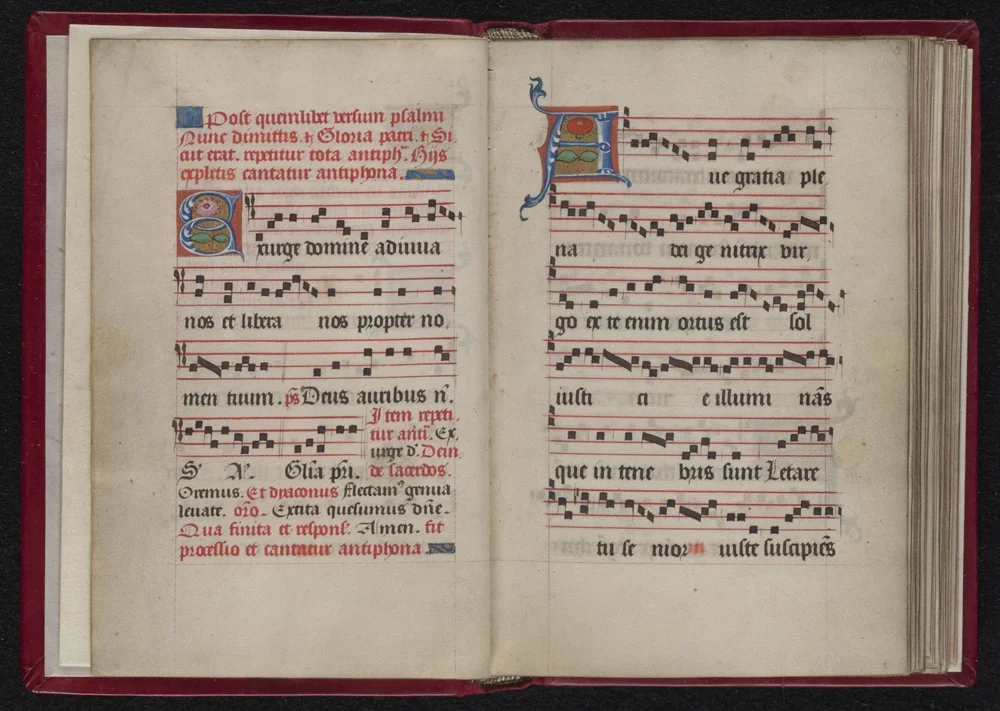 Post quemlibet versum psalmi
Nunc dimittis. & Gloria patri. & Si
cut erat. repetitur tota antiph'. Hijs
expletis cantatur antiphona.
Exurge domine adiuua
nos et libera nos propter no
men tuum. ps Deus auribus n̄.
Item repeti
tur anti. Ex
urge d'. Dein
S' A'. Glia pri. de sacerdos.
Oremus. Et dyaconus flectam' genua
leuate. oro. Excita quesumus dn̄e.
Qua finita et respons'. Amen. fit
processio et cantatur antiphona
Aue gratia ple
na dei genitrix vir
go ex te enim ortus est sol
iusti ci e illumi nās
que in tene bris sunt Letare
tu se nior iuste suscipiēs